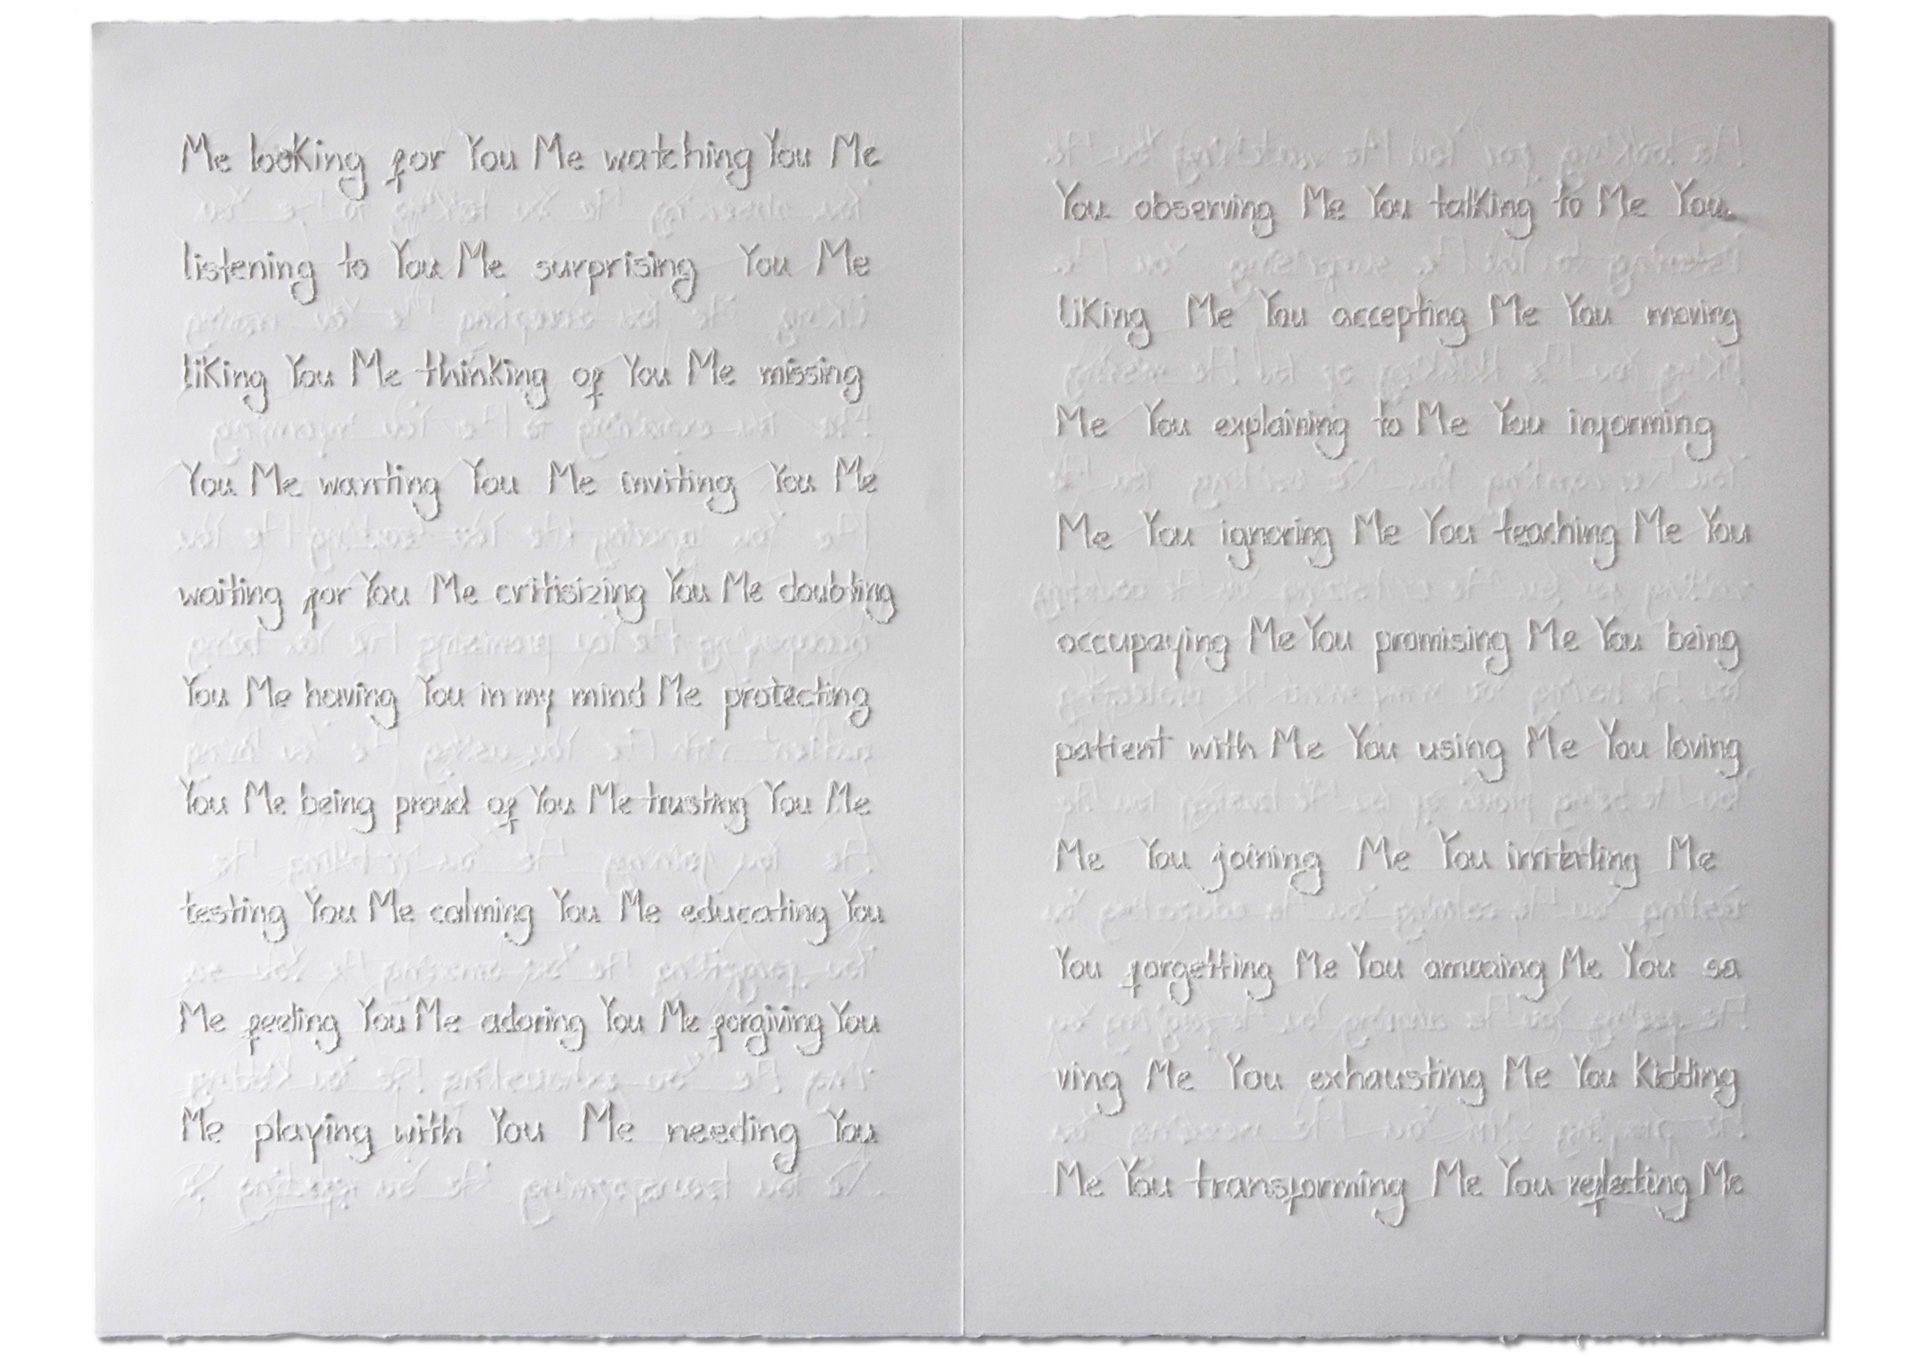 Me looking for You Me watching You Me
listening to You Me surprising You Me
liking You Me thinking of You Me missing
You Me wanting You Me inviting You Me
waiting for You Me critisizing You Me doubting
You Me having You in my mind Me protecting
You Me being proud of You Me trusting You Me
testing You Me calming You Me educating You
Me feeling You Me adoring You Me forgiving You
Me playing with You Me needing You
You observing Me You talking to Me You
liking Me You accepting Me You moving
Me You explaining to Me You informing
Me You ignoring Me You teaching Me You
occupaying Me You promising Me You being
patient with Me You using Me You loving
Me You joining Me You Me
You forgetting Me You amazing Me You sa
ving Me You exhausting Me You Kidding
Me You transforming Me You reflecting Me